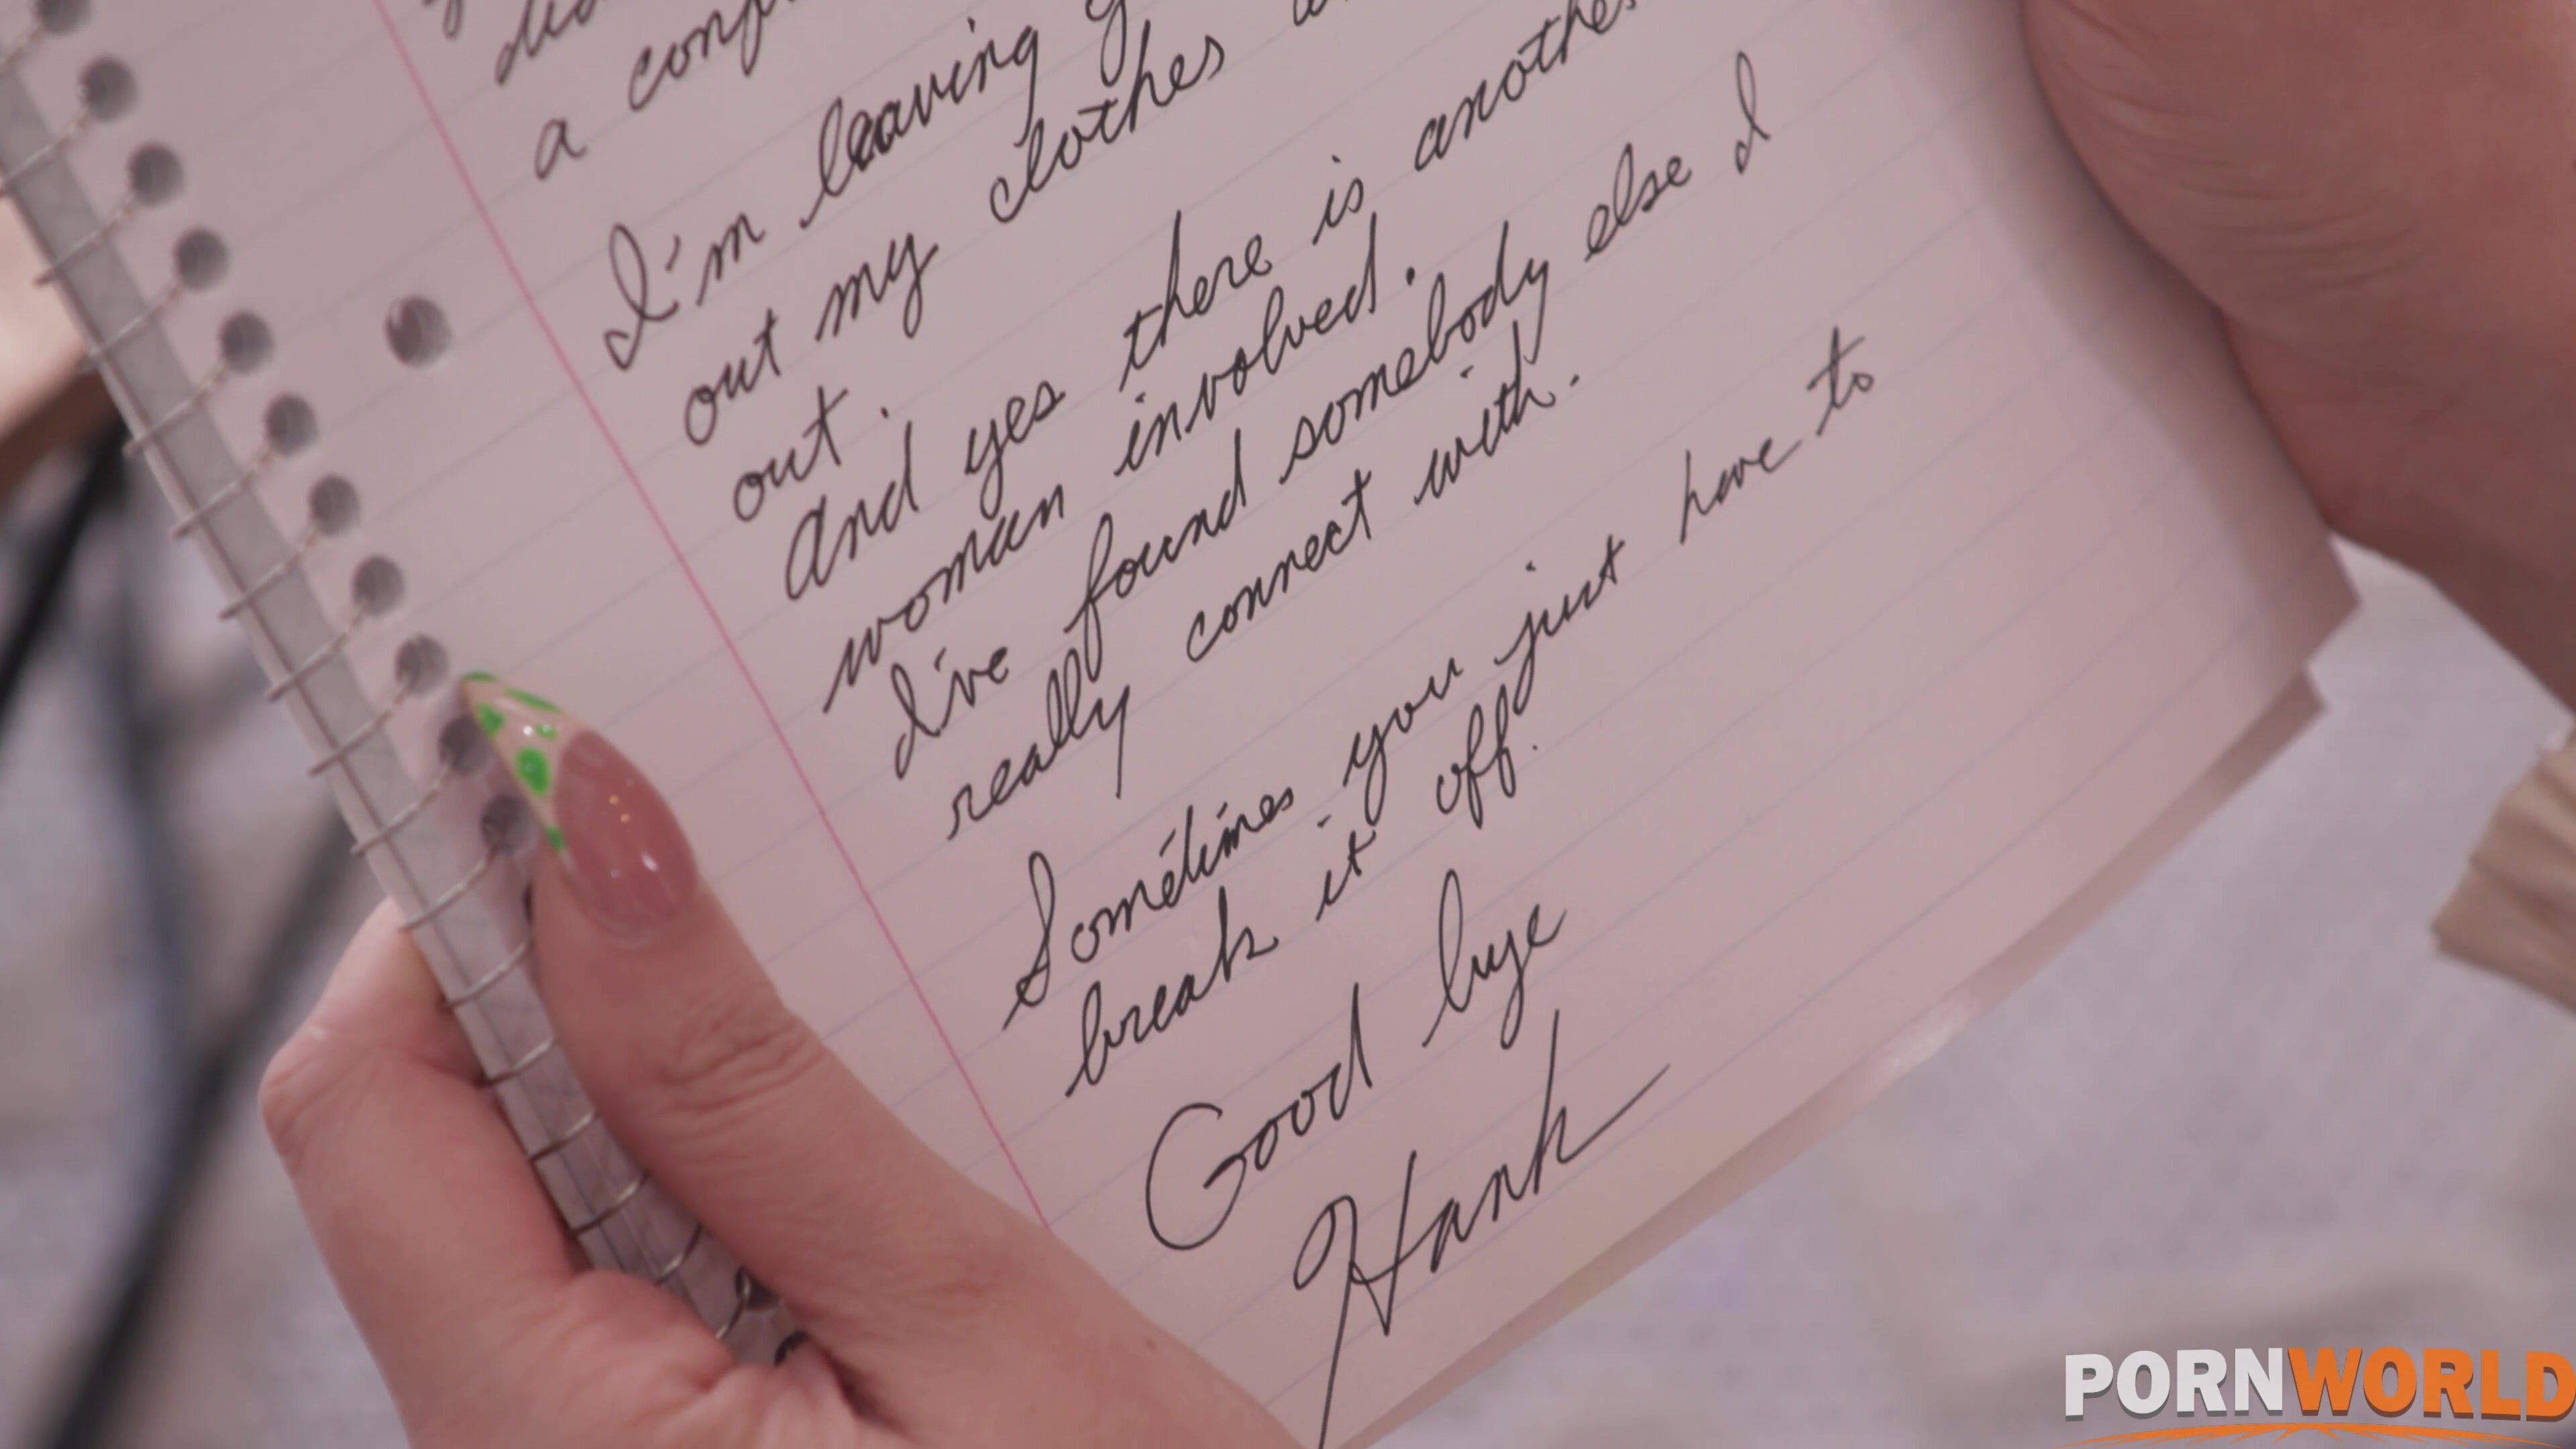 a
I'm leaving
out my clothes
out.
And yes there is another
woman involved.
I've found somebody else I
really connect with.
Sometimes you just have to
break it off.
Good bye
Hank
PORNWORLD